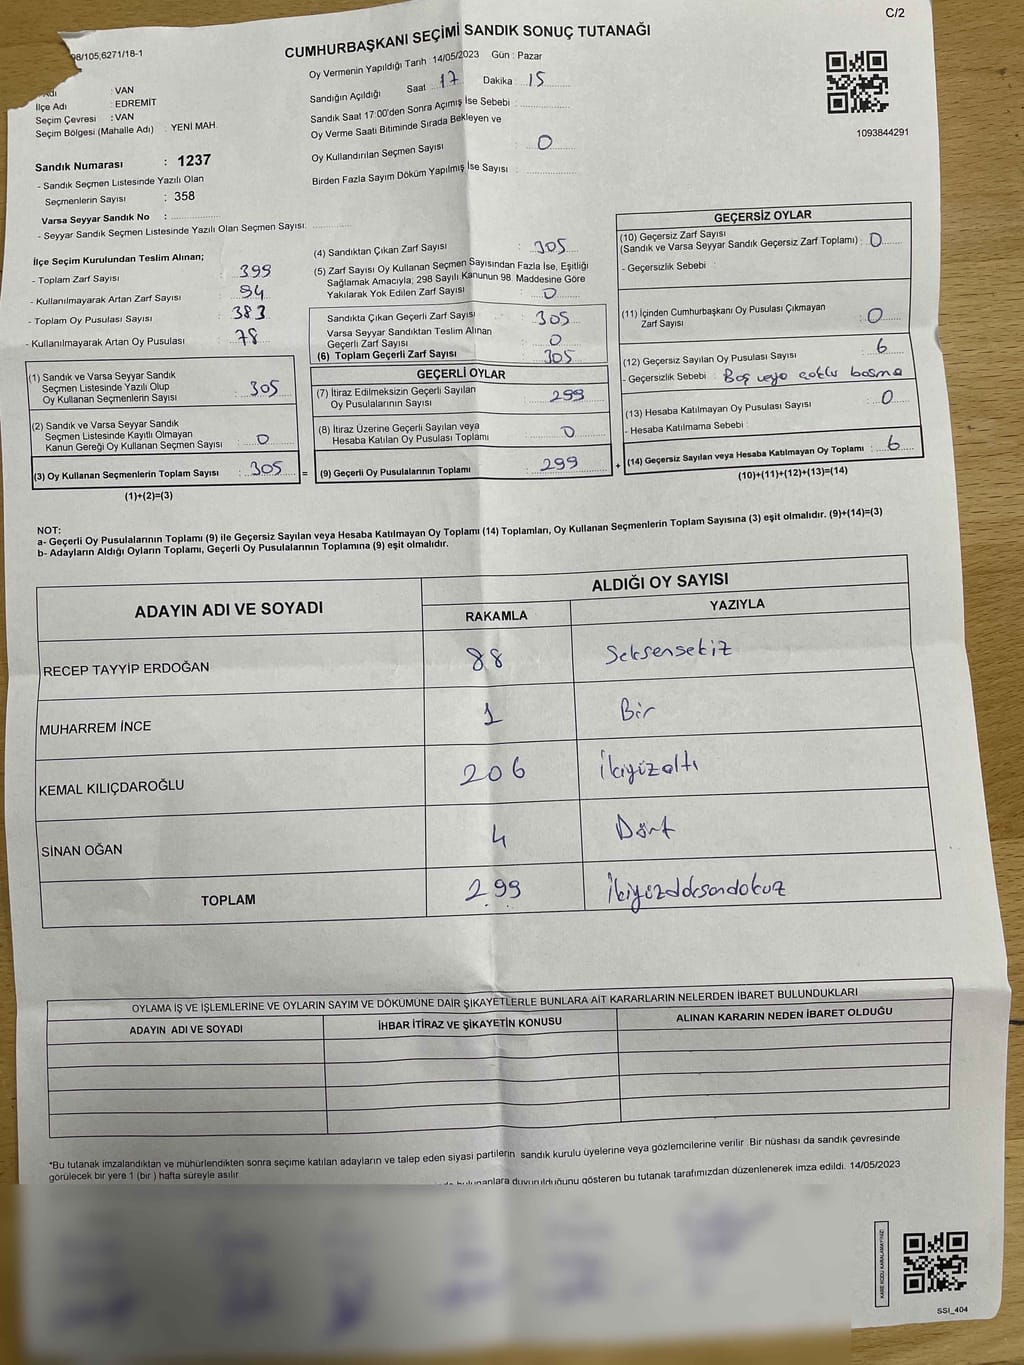 C/2
98/105,6271/18-1
CUMHURBAŞKANI SEÇİMİ SANDIK SONUÇ TUTANAĞI
Oy Vermenin Yapıldığı Tarih : 14/05/2023 Gün : Pazar
Sandığın Açıldığı Saat 17 Dakika : 15
Sandık Saat 17:00'den Sonra Açımış İse Sebebi :
Oy Verme Saati Bitiminde Sırada Bekleyen ve
Oy Kullandırılan Seçmen Sayısı : 0
Birden Fazla Sayım Döküm Yapılmış İse Sayısı :
1093844291
: VAN
İlçe Adı : EDREMİT
Seçim Çevresi : VAN
Seçim Bölgesi (Mahalle Adı) : YENİ MAH.
Sandık Numarası : 1237
- Sandık Seçmen Listesinde Yazılı Olan
Seçmenlerin Sayısı : 358
Varsa Seyyar Sandık No :
- Seyyar Sandık Seçmen Listesinde Yazılı Olan Seçmen Sayısı:
İlçe Seçim Kurulundan Teslim Alınan;
- Toplam Zarf Sayısı : 399
- Kullanılmayarak Artan Zarf Sayısı : 94
- Toplam Oy Pusulası Sayısı : 383
- Kullanılmayarak Artan Oy Pusulası : 78
(1) Sandık ve Varsa Seyyar Sandık
Seçmen Listesinde Yazılı Olup
Oy Kullanan Seçmenlerin Sayısı : 305
(2) Sandık ve Varsa Seyyar Sandık
Seçmen Listesinde Kayıtlı Olmayan
Kanun Gereği Oy Kullanan Seçmen Sayısı : 0
(3) Oy Kullanan Seçmenlerin Toplam Sayısı : 305 =
(1)+(2)=(3)
(4) Sandıktan Çıkan Zarf Sayısı : 305
(5) Zarf Sayısı Oy Kullanan Seçmen Sayısından Fazla İse, Eşitliği
Sağlamak Amacıyla, 298 Sayılı Kanunun 98. Maddesine Göre
Yakılarak Yok Edilen Zarf Sayısı : 0
Sandıkta Çıkan Geçerli Zarf Sayısı : 305
Varsa Seyyar Sandıktan Teslim Alınan
Geçerli Zarf Sayısı : 0
(6) Toplam Geçerli Zarf Sayısı : 305
GEÇERLİ OYLAR
(7) İtiraz Edilmeksizin Geçerli Sayılan
Oy Pusulalarının Sayısı : 299
(8) İtiraz Üzerine Geçerli Sayılan veya
Hesaba Katılan Oy Pusulası Toplamı : 0
(9) Geçerli Oy Pusulalarının Toplamı : 299 +
GEÇERSİZ OYLAR
(10) Geçersiz Zarf Sayısı
(Sandık ve Varsa Seyyar Sandık Geçersiz Zarf Toplamı) : 0
- Geçersizlik Sebebi :
(11) İçinden Cumhurbaşkanı Oy Pusulası Çıkmayan
Zarf Sayısı : 0
(12) Geçersiz Sayılan Oy Pusulası Sayısı : 6
- Geçersizlik Sebebi : Boş veya çoklu basma
(13) Hesaba Katılmayan Oy Pusulası Sayısı : 0
- Hesaba Katılmama Sebebi :
(14) Geçersiz Sayılan veya Hesaba Katılmayan Oy Toplamı : 6
(10)+(11)+(12)+(13)=(14)
NOT:
a- Geçerli Oy Pusulalarının Toplamı (9) ile Geçersiz Sayılan veya Hesaba Katılmayan Oy Toplamı (14) Toplamları, Oy Kullanan Seçmenlerin Toplam Sayısına (3) eşit olmalıdır. (9)+(14)=(3)
b- Adayların Aldığı Oyların Toplamı, Geçerli Oy Pusulalarının Toplamına (9) eşit olmalıdır.
ADAYIN ADI VE SOYADI
ALDIĞI OY SAYISI
RAKAMLA YAZIYLA
RECEP TAYYİP ERDOĞAN 88 Seksensekiz
MUHARREM İNCE 1 Bir
KEMAL KILIÇDAROĞLU 206 İkiyüzaltı
SİNAN OĞAN 4 Dört
TOPLAM 299 İkiyüzdoksandokuz
OYLAMA İŞ VE İŞLEMLERİNE VE OYLARIN SAYIM VE DÖKÜMÜNE DAİR ŞİKAYETLERLE BUNLARA AİT KARARLARIN NELERDEN İBARET BULUNDUKLARI
ADAYIN ADI VE SOYADI İHBAR İTİRAZ VE ŞİKAYETİN KONUSU ALINAN KARARIN NEDEN İBARET OLDUĞU
*Bu tutanak imzalandıktan ve mühürlendikten sonra seçime katılan adayların ve talep eden siyasi partilerin sandık kurulu üyelerine veya gözlemcilerine verilir. Bir nüshası da sandık çevresinde
görülecek bir yere 1 (bir ) hafta süreyle asılır.
duyurulduğunu gösteren bu tutanak tarafımızdan düzenlenerek imza edildi. 14/05/2023
KARE KODU KARALAMAYINIZ!
SSI_404